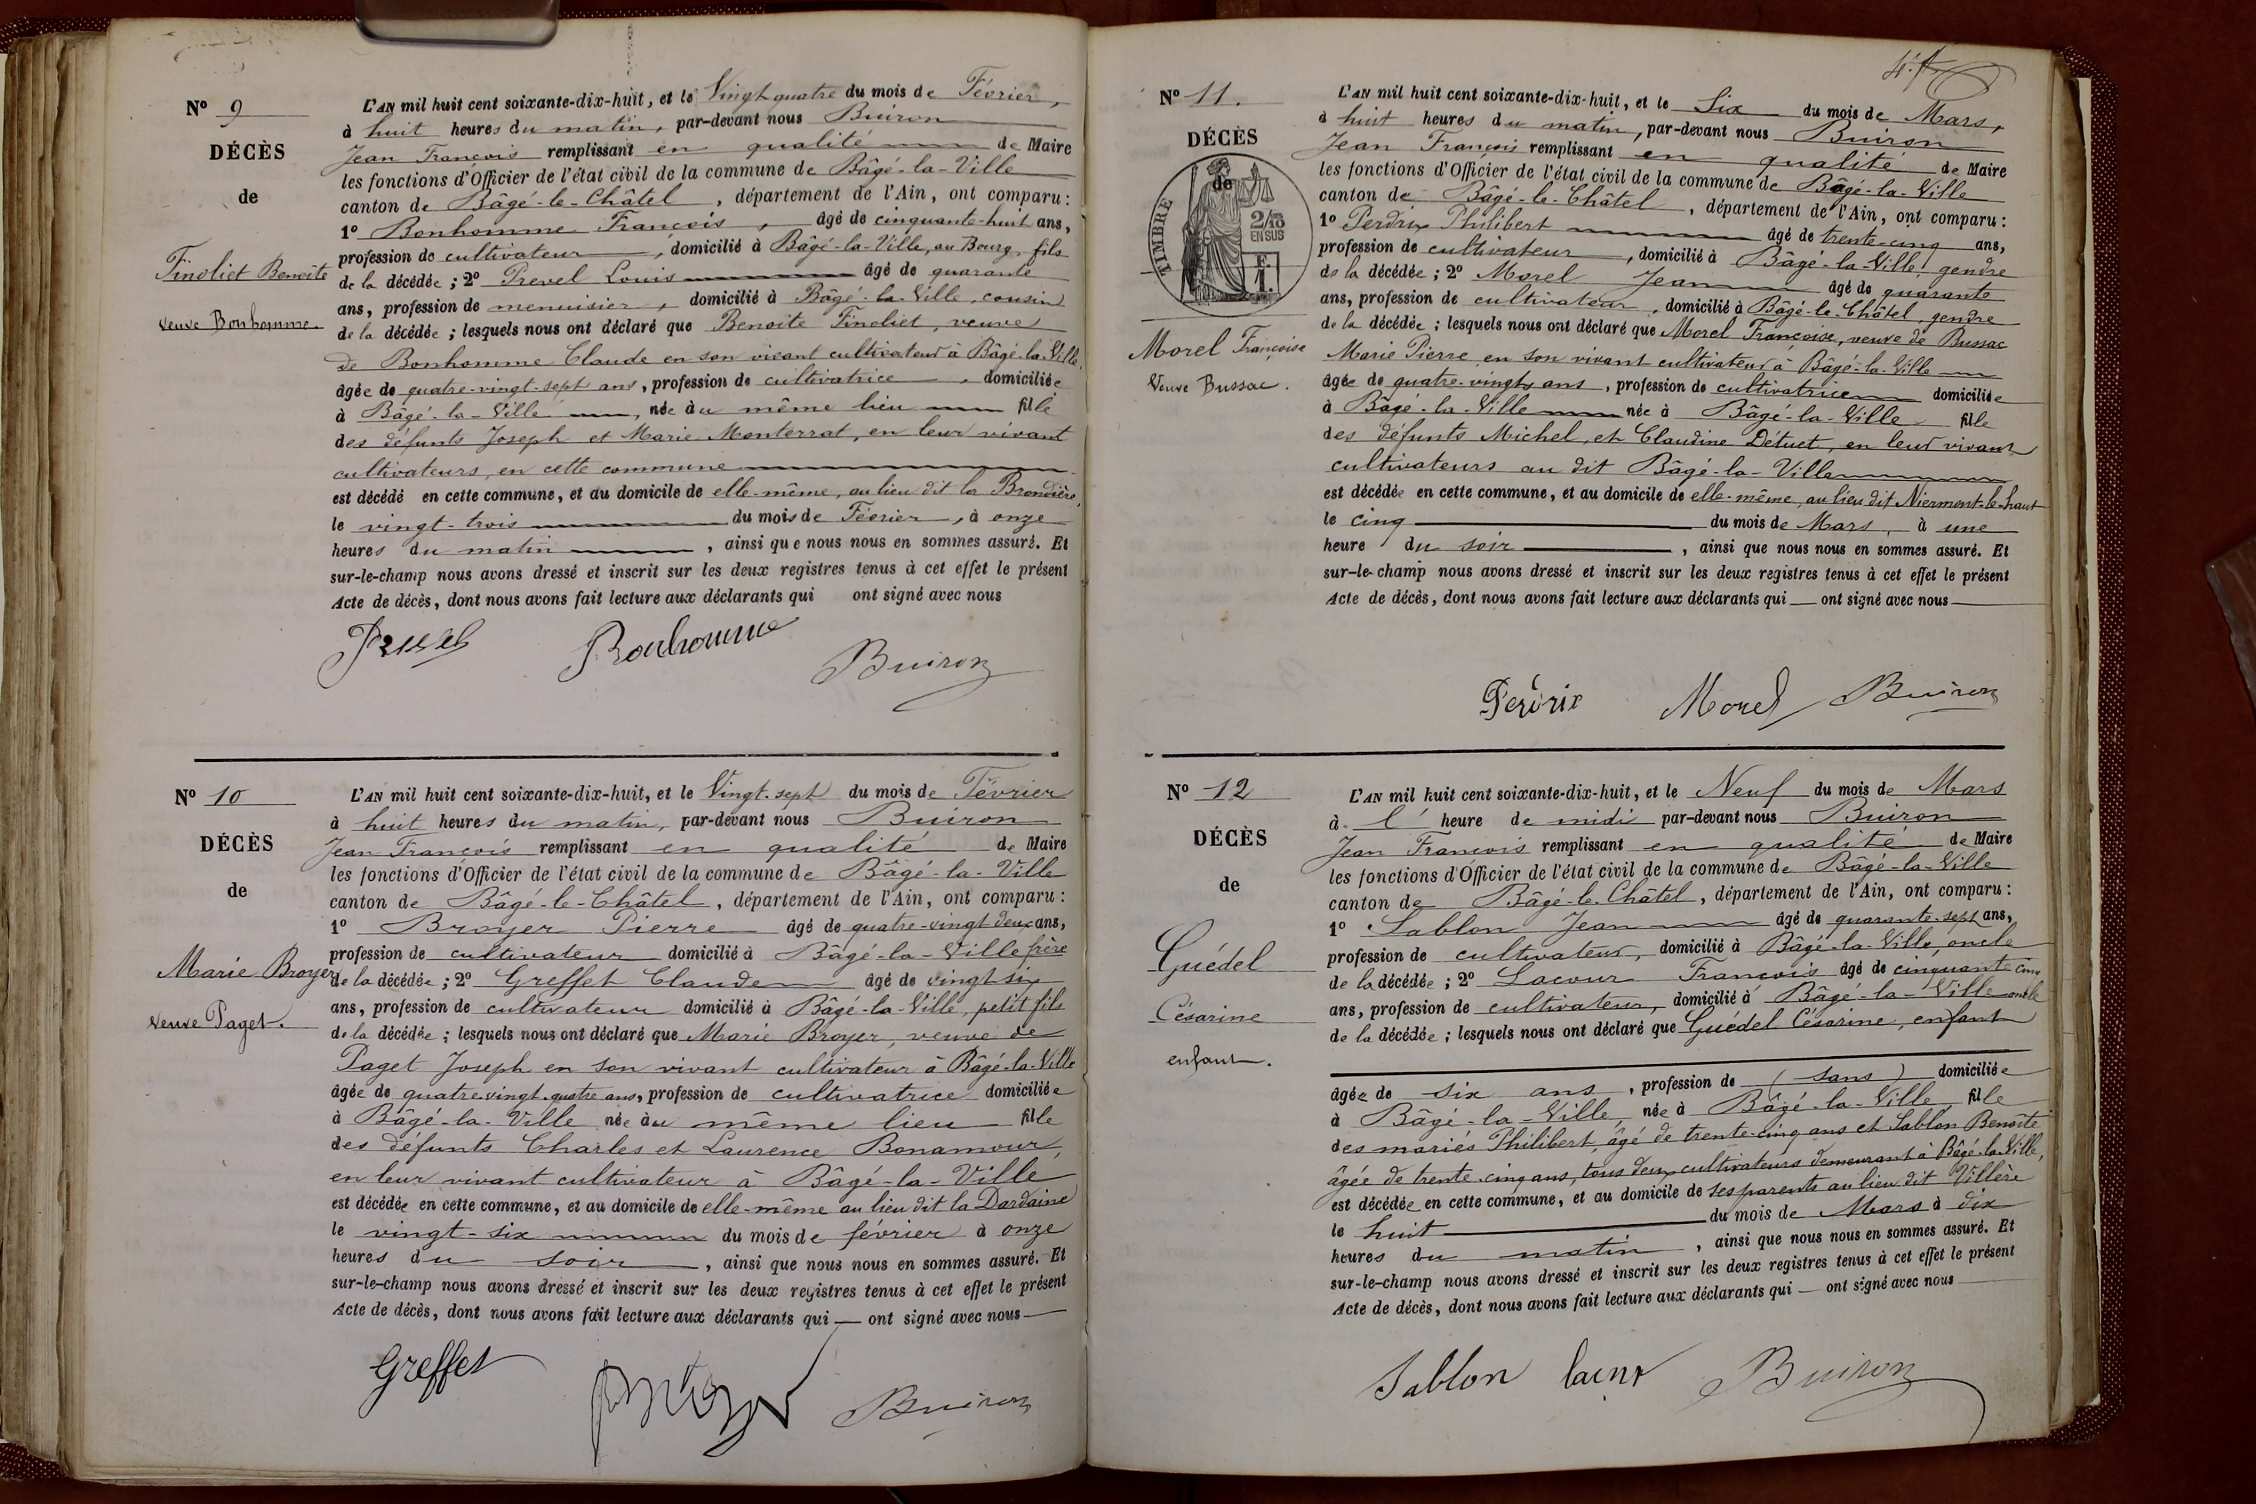 Nº 9
DÉCÈS
de
Finoliet Benoite
veuve Bonhomme.
L'AN mil huit cent soixante-dix-huit, et le Vingt quatre du mois de Février,
à huit heures du matin, par-devant nous Buiron
Jean François remplissant en qualité de Maire
les fonctions d'Officier de l'état civil de la commune de Bâgé-la-Ville
canton de Bâgé-le-Châtel, département de l'Ain, ont comparu :
1º Bonhomme François, âgé de cinquante-huit ans,
profession de cultivateur, domicilié à Bâgé-la-Ville, au Bourg, fils
de la décédée ; 2º Prevel Louis âgé de quarante
ans, profession de menuisier, domicilié à Bâgé-la-Ville, cousin
de la décédée ; lesquels nous ont déclaré que Benoite Finoliet, veuve
de Bonhomme Claude en son vivant cultivateur à Bâgé-la-Ville,
âgée de quatre-vingt-sept ans, profession de cultivatrice, domiciliée
à Bâgé-la-Ville, née au même lieu fille
des défunts Joseph et Marie Monterrat, en leur vivant
cultivateurs, en cette commune
est décédé en cette commune, et au domicile de elle-même, au lieu dit la Brondière,
le vingt-trois du mois de Février, à onze
heures du matin, ainsi que nous nous en sommes assuré. Et
sur-le-champ nous avons dressé et inscrit sur les deux registres tenus à cet effet le présent
Acte de décès, dont nous avons fait lecture aux déclarants qui ont signé avec nous
Prevel Bonhomme Buiron
Nº 10
DÉCÈS
de
Marie Broyer
veuve Paget.
L'AN mil huit cent soixante-dix-huit, et le Vingt-sept du mois de Février
à huit heures du matin, par-devant nous Buiron
Jean François remplissant en qualité de Maire
les fonctions d'Officier de l'état civil de la commune de Bâgé-la-Ville
canton de Bâgé-le-Châtel, département de l'Ain, ont comparu :
1º Broyer Pierre âgé de quatre-vingt deux ans,
profession de cultivateur domicilié à Bâgé-la-Ville frère
de la décédée ; 2º Greffet Claude âgé de vingt six
ans, profession de cultivateur domicilié à Bâgé-la-Ville, petit fils
de la décédée ; lesquels nous ont déclaré que Marie Broyer, veuve de
Paget Joseph en son vivant cultivateur à Bâgé-la-Ville
âgée de quatre-vingt-quatre ans, profession de cultivatrice domiciliée
à Bâgé-la-Ville née au même lieu fille
des défunts Charles et Laurence Bonamour,
en leur vivant cultivateur à Bâgé-la-Ville
est décédée en cette commune, et au domicile de elle-même au lieu dit la Dardaine
le vingt-six du mois de février à onze
heures du soir, ainsi que nous nous en sommes assuré. Et
sur-le-champ nous avons dressé et inscrit sur les deux registres tenus à cet effet le présent
Acte de décès, dont nous avons fait lecture aux déclarants qui — ont signé avec nous —
Greffet Buiron
Nº 11.
DÉCÈS
de
TIMBRE
2/10
EN SUS
F.
1.
Morel Françoise
Veuve Bussac.
L'AN mil huit cent soixante-dix-huit, et le Six du mois de Mars,
à huit heures du matin, par-devant nous Buiron
Jean François remplissant en qualité de Maire
les fonctions d'Officier de l'état civil de la commune de Bâgé-la-Ville
canton de Bâgé-le-Châtel, département de l'Ain, ont comparu :
1º Perdrix Philibert âgé de trente-cinq ans,
profession de cultivateur, domicilié à Bâgé-la-Ville, gendre
de la décédée ; 2º Morel Jean âgé de quarante
ans, profession de cultivateur, domicilié à Bâgé-le-Châtel, gendre
de la décédée ; lesquels nous ont déclaré que Morel Françoise, veuve de Bussac
Marie Pierre en son vivant cultivateur à Bâgé-la-Ville
âgée de quatre-vingts ans, profession de cultivatrice domiciliée
à Bâgé-la-Ville née à Bâgé-la-Ville fille
des défunts Michel, et Claudine Détuet, en leur vivant
cultivateurs au dit Bâgé-la-Ville
est décédée en cette commune, et au domicile de elle-même, au lieu dit Niermont-le-haut
le cinq du mois de Mars, à une
heure du soir, ainsi que nous nous en sommes assuré. Et
sur-le-champ nous avons dressé et inscrit sur les deux registres tenus à cet effet le présent
Acte de décès, dont nous avons fait lecture aux déclarants qui — ont signé avec nous —
Perdrix Morel Buiron
Nº 12
DÉCÈS
de
Guédel
Césarine
enfant.
L'AN mil huit cent soixante-dix-huit, et le Neuf du mois de Mars
à l' heure de midi par-devant nous Buiron
Jean François remplissant en qualité de Maire
les fonctions d'Officier de l'état civil de la commune de Bâgé-la-Ville
canton de Bâgé-le-Châtel, département de l'Ain, ont comparu :
1º Sablon Jean âgé de quarante-sept ans,
profession de cultivateur, domicilié à Bâgé-la-Ville, oncle
de la décédée ; 2º Lacour François âgé de cinquante cinq
ans, profession de cultivateur, domicilié à Bâgé-la-Ville oncle
de la décédée ; lesquels nous ont déclaré que Guédel Césarine, enfant
âgée de six ans, profession de (sans) domiciliée
à Bâgé-la-Ville, née à Bâgé-la-Ville, fille
des mariés Philibert, âgé de trente-cinq ans et Sablon Benoîte
âgée de trente-cinq ans, tous deux cultivateurs demeurant à Bâgé-la-Ville,
est décédée en cette commune, et au domicile de ses parents au lieu dit Villère
le huit du mois de Mars à dix
heures du matin, ainsi que nous nous en sommes assuré. Et
sur-le-champ nous avons dressé et inscrit sur les deux registres tenus à cet effet le présent
Acte de décès, dont nous avons fait lecture aux déclarants qui — ont signé avec nous —
Sablon lacour Buiron